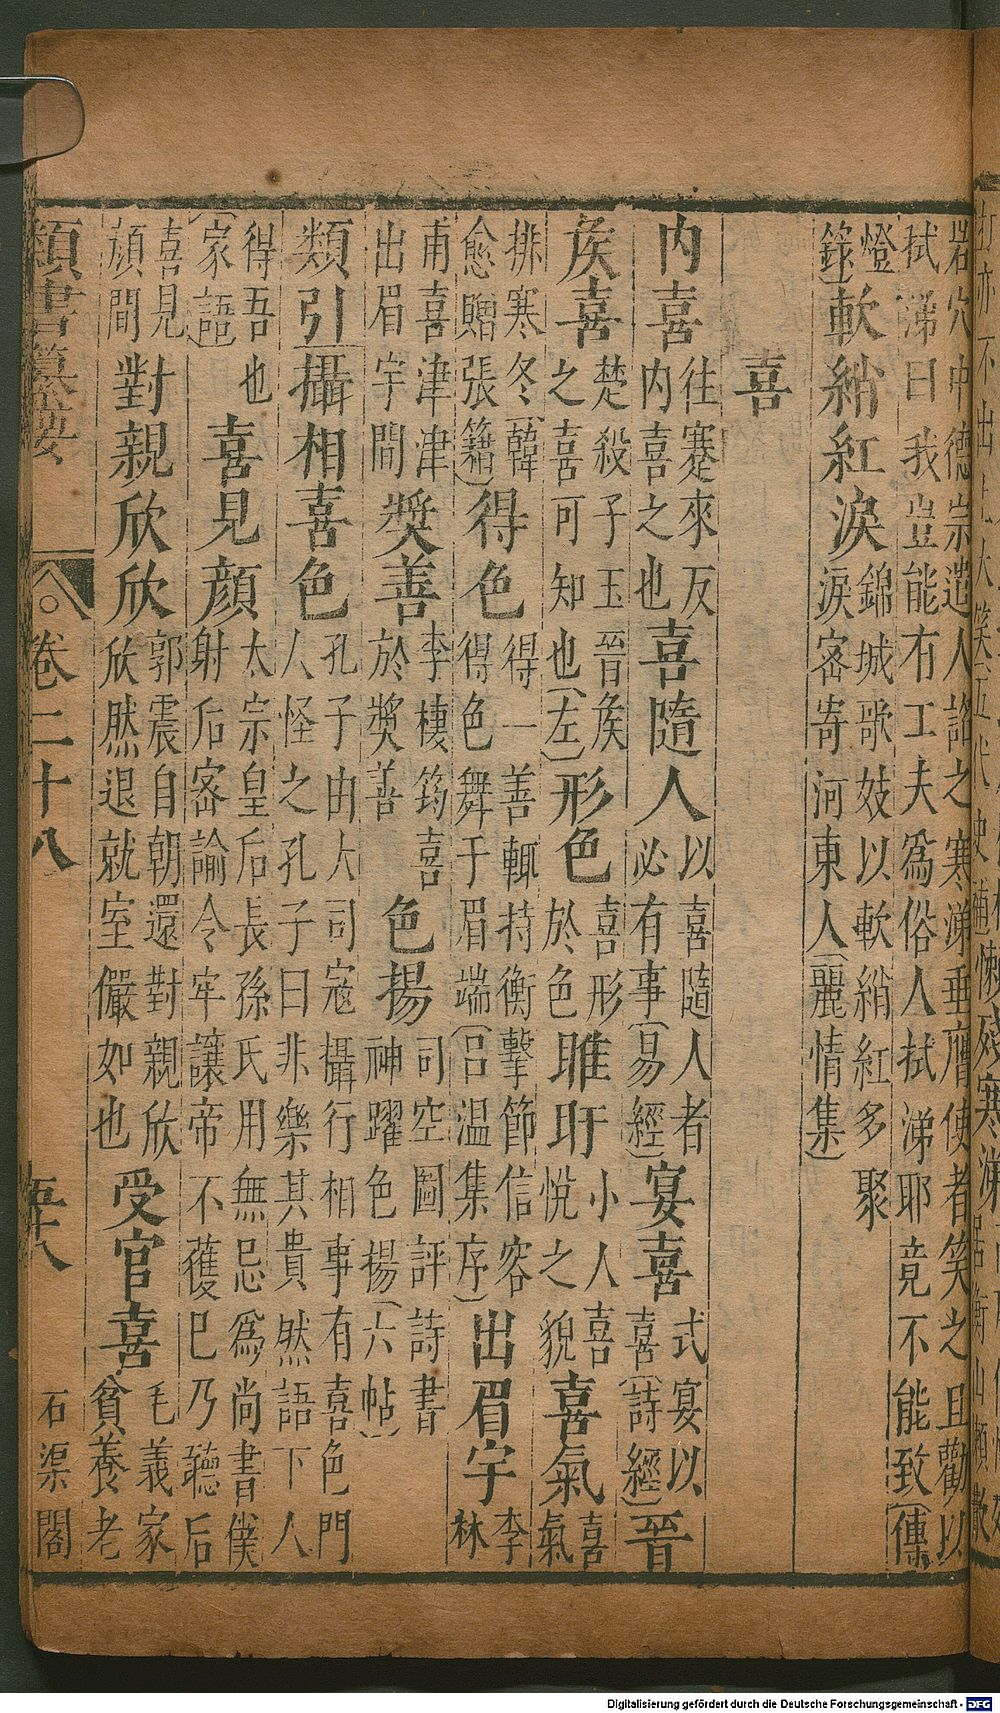 岩穴中德宗遣人詔之寒涕垂膺使者笑之且勸以
拭涕曰我豈能有工夫爲俗人拭涕耶竟不能致(傳
燈
錄)軟綃紅淚錦城歌妓以軟綃紅多聚
淚密寄河東人(麗情集)
喜
内喜往蹇來反
内喜之也喜隨人以喜隨人者
必有事(易經)宴喜式宴以
喜(詩經)晉
矦喜楚殺子玉晉矦
之喜可知也(左)形色喜形
於色睢盱小人喜
悅之貌喜氣喜
氣
排寒冬(韓
愈贈張籍)得色得一善輒持衡擊節信容
得色舞于眉端(呂温集序)出眉宇李
林
甫喜津津
出眉宇間奬善李棲筠喜
於奬善色揚司空圖評詩書
神躍色揚(六帖)
類引攝相喜色孔子由大司寇攝行相事有喜色門
人怪之孔子曰非樂其貴然語下人
得吾也
(家語)喜見顔太宗皇后長孫氏用無忌爲尚書僕
射后密諭令牢讓帝不獲已乃聽后
喜見
頄間對親欣欣郭震自朝還對親欣
欣然退就室儼如也受官喜毛義家
貧養老
類書纂要
卷二十八
五十八
石渠閣
Digitalisierung gefördert durch die Deutsche Forschungsgemeinschaft - DFG